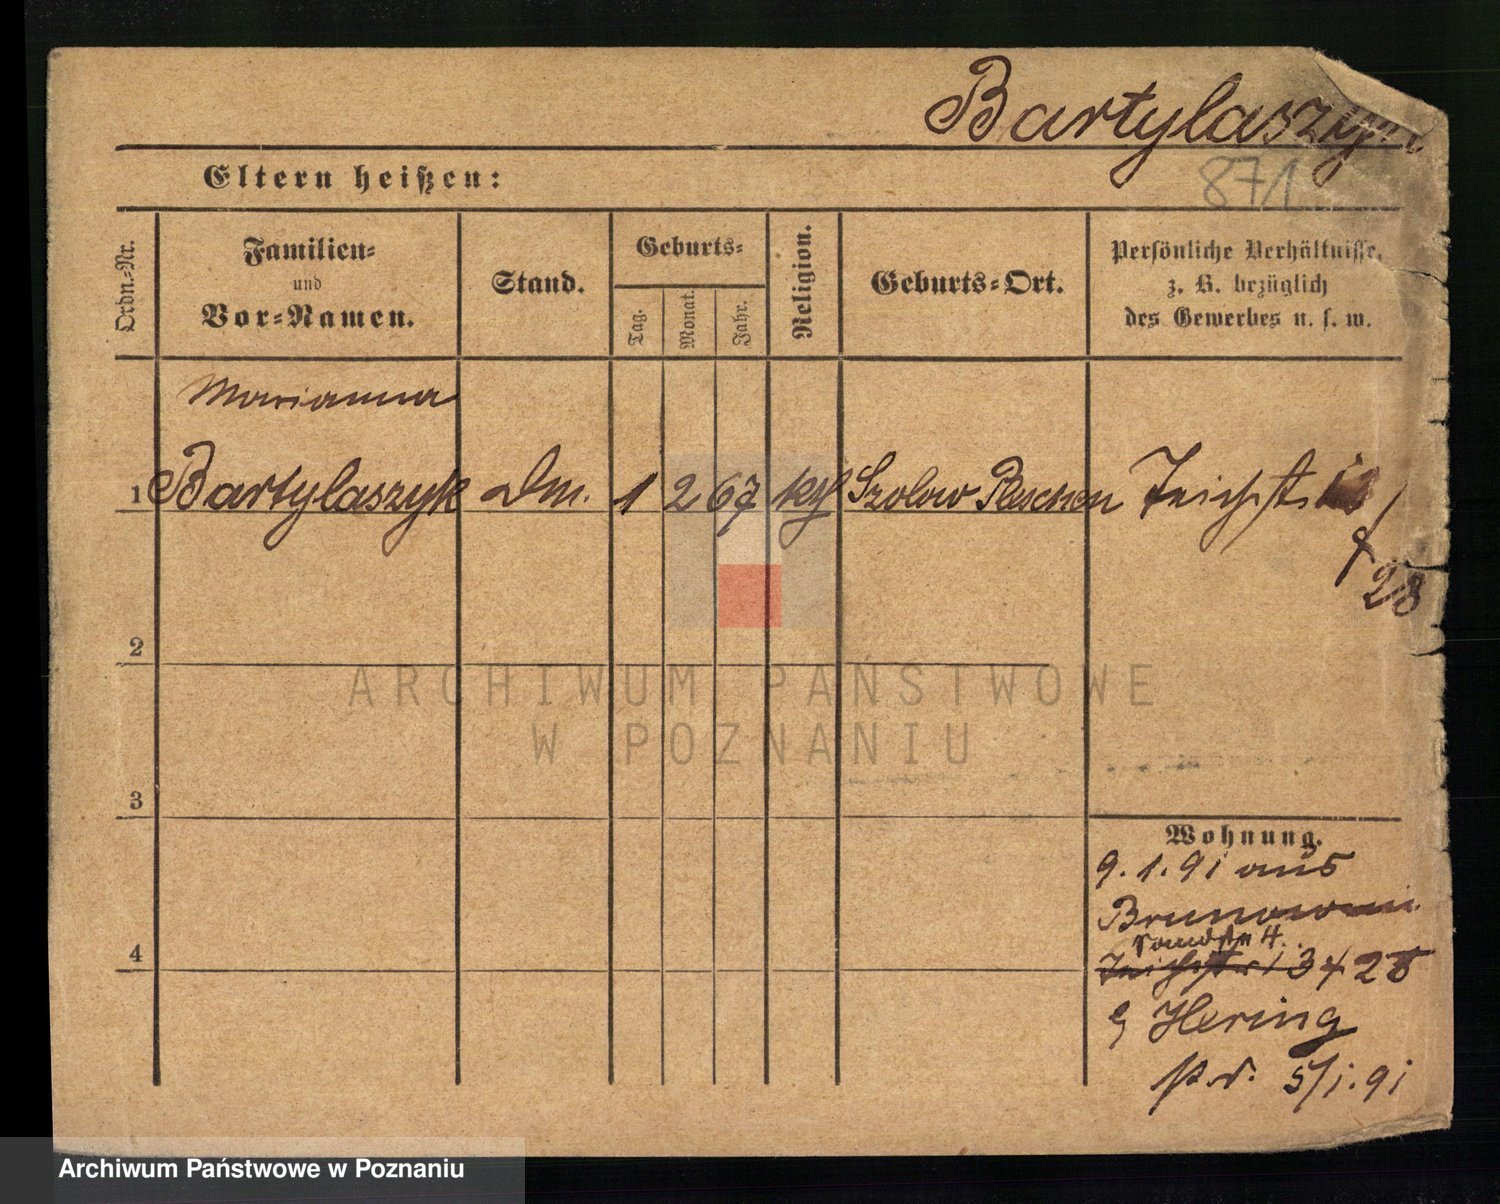 Bartylaszyk
871
Eltern heißen:
Ordn.-Nr.
Familien-
und
Vor-Namen.
Stand.
Geburts-
Tag.
Monat.
Jahr.
Religion.
Geburts-Ort.
Persönliche Verhältnisse,
z. B. bezüglich
des Gewerbes u. s. w.
Marianna
1 Bartylaszyk Dm. 1 2 67 kth Szolow Pleschen Teichstr. 13
28
2
3
4
Wohnung.
9.1.91 aus
Brunowo
4.
Teichstr 13 28
Hering
pr. 5/1.91
ARCHIWUM PAŃSTWOWE
W POZNANIU
Archiwum Państwowe w Poznaniu